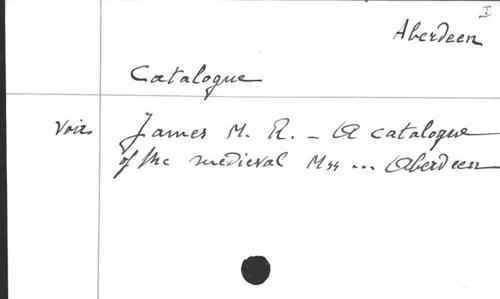 I
Aberdeen
Catalogue
Voir James M. R. – A catalogue
of the medieval Mss ... Aberdeen